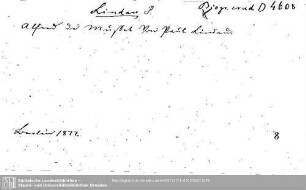 Lindau P. Biogr. erud D 4600
Alfred de Musset von Paul Lindau.
Berlin 1877. 8
Sächsische Landesbibliothek -
Staats- und Universitätsbibliothek Dresden